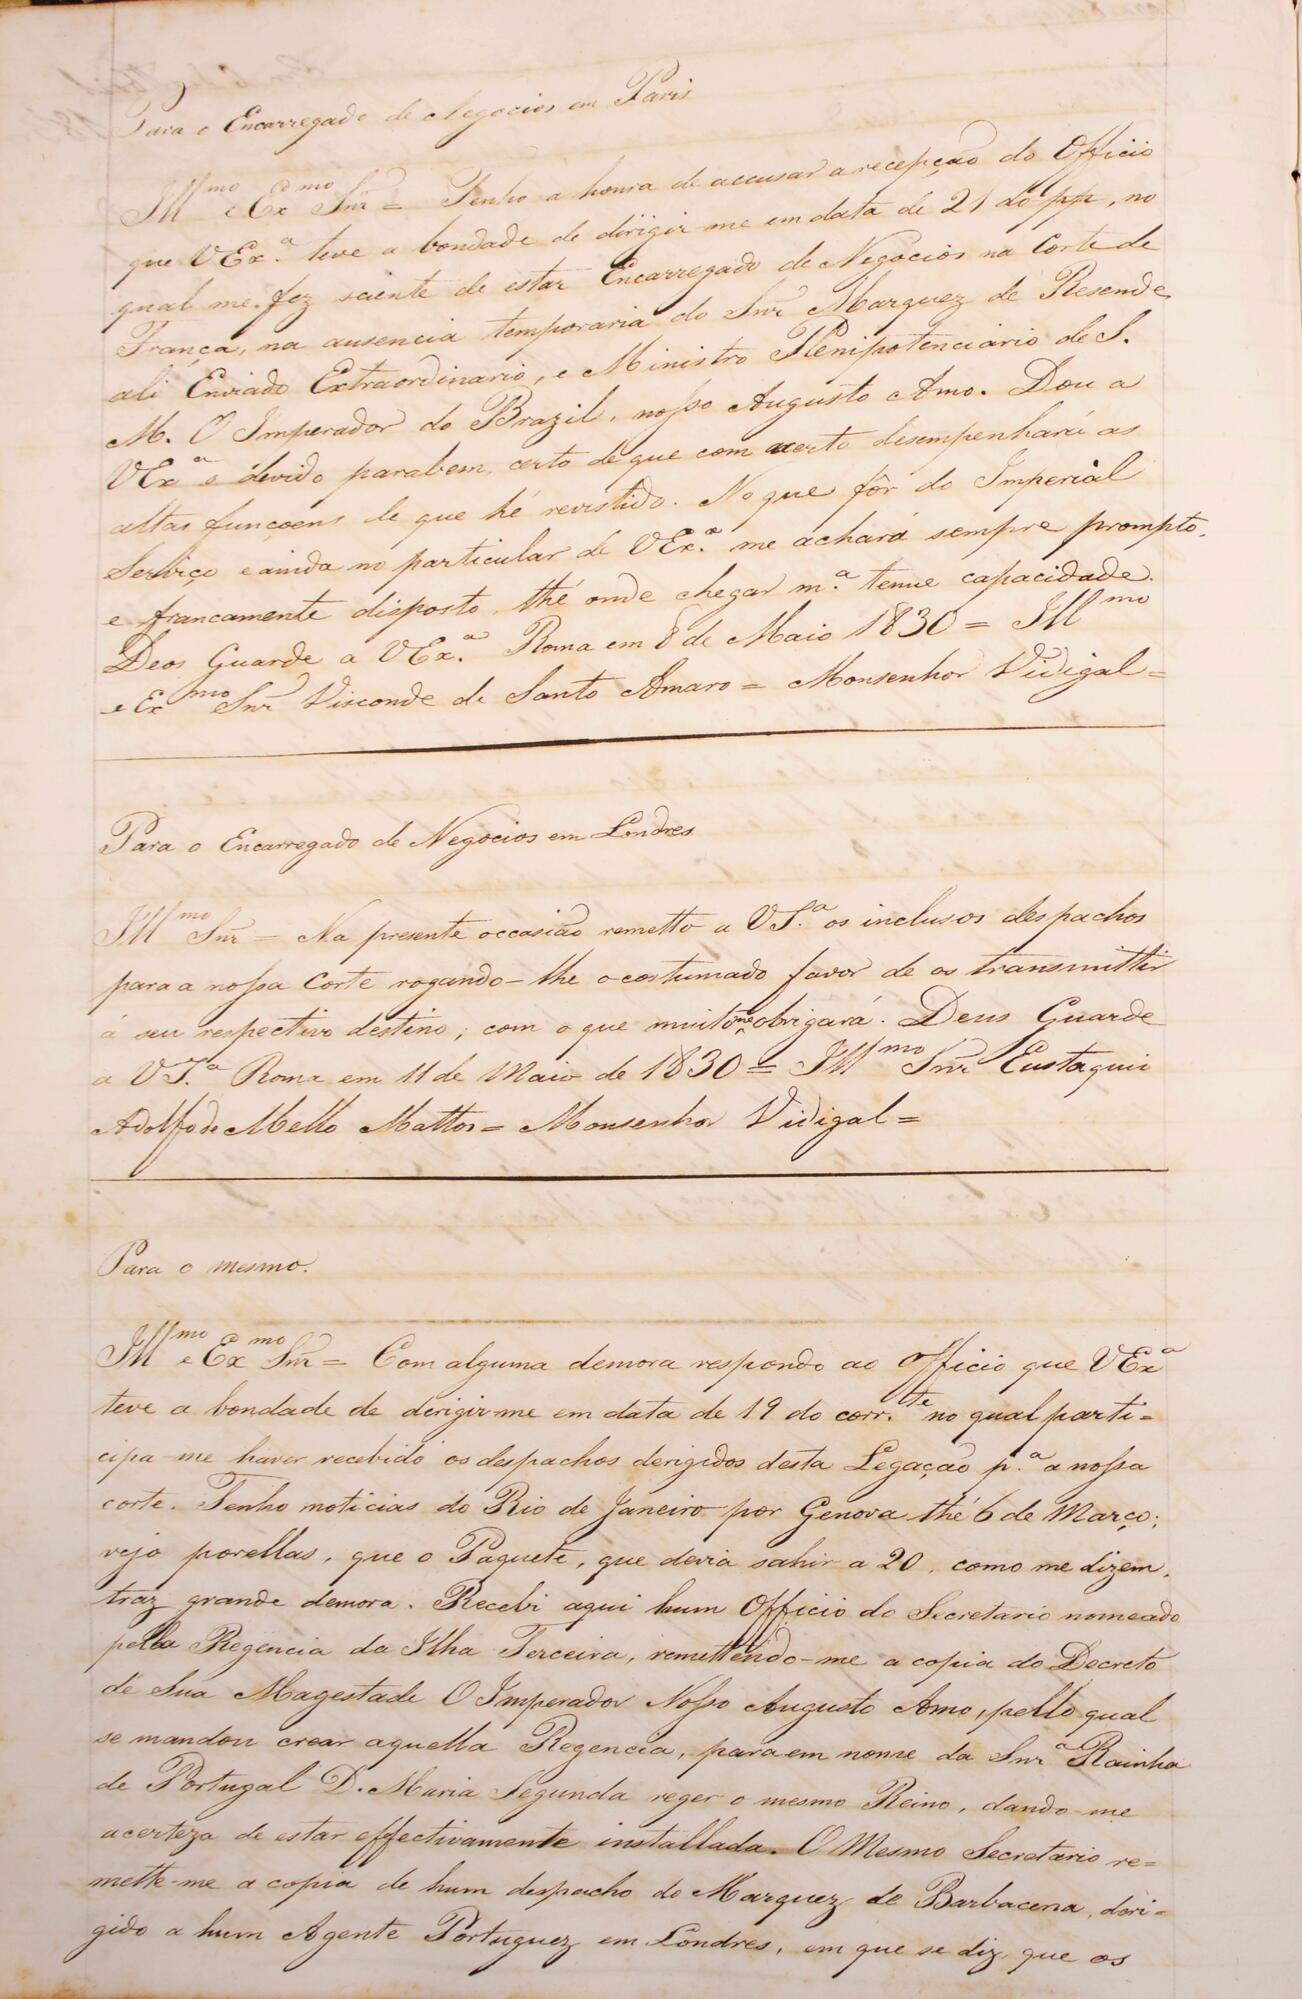 Para o Encarregado de Negocios em Paris
Illmo e Exmo Snr = Tenho a honra de accusar a recepção do Officio
que VExa. teve a bondade de dirigir-me em data de 21 do pp, no
qual me fez sciente de estar Encarregado de Negocios na Corte de
França, na ausencia temporaria do Snr Marquez de Resende,
ali Enviado Extraordinario, e Ministro Plenipotenciario de S.
M. O Imperador do Brazil, nosso Augusto Amo. Dou a
VExa o devido parabem, certo de que com acerto desempenhará as
altas funçoens de que hé revistido. No que fôr do Imperial
Serviço e ainda no particular de VExa. me achará sempre prompto,
e francamente disposto, thé onde chegar ma. tenue capacidade.
Deos Guarde a VExa. Roma em 8 de Maio 1830 = Illmo
e Exmo Snr Visconde de Santo Amaro = Monsenhor Vidigal =
Para o Encarregado de Negocios em Londres
Illmo Snr = Na presente occasião remetto a VSa. os inclusos despachos
para a nossa Corte rogando-lhe o costumado favor de os transmittir
á seu respectivo destino, com o que muito me obrigará. Deus Guarde
a VSa. Roma em 11 de Maio de 1830 = Illmo Snr Eustaquio
Adolfo de Mello Mattos = Monsenhor Vidigal =
Para o mesmo.
Illmo e Exmo Snr = Com alguma demora respondo ao Officio que VExa
teve a bondade de dirigir-me em data de 19 do corr.te no qual parti=
cipa-me haver recebido os despachos derigidos desta Legação p.a a nossa
corte. Tenho noticias do Rio de Janeiro por Genova thé 6 de Março;
vejo porellas, que o Paquete, que devia sahir a 20, como me dizem,
traz grande demora. Recebi aqui hum Officio do Secretario nomeado
pella Regencia da Ilha Terceira, remettendo-me a copia do Decreto
de Sua Magestade O Imperador Nosso Augusto Amo, pello qual
se mandou crear aquella Regencia, para em nome da Snra Rainha
de Portugal D. Maria Segunda reger o mesmo Reino, dando-me
a certeza de estar effectivamente installada. O Mesmo Secretario re=
mette-me a copia de hum despacho do Marquez de Barbacena, deri=
gido a hum Agente Portuguez em Londres, em que se diz que os